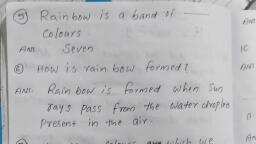 ⑤ Rainbow is a band of ——
Colours
Ans. Seven
⑥ How is rainbow formed?
Ans. Rainbow is formed when Sun
rays pass from the water drople
Present in the air.
which we